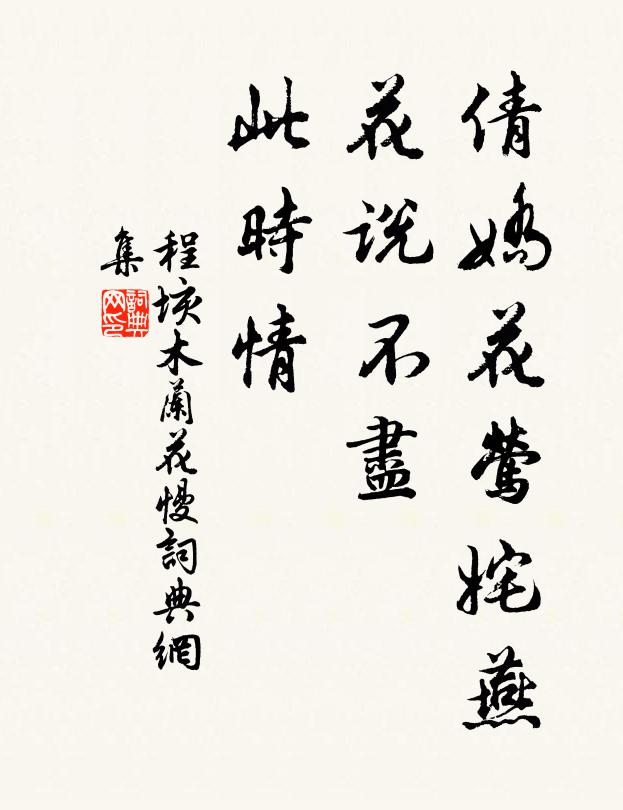 倩嬌花鶯姹燕
花說不盡
此時情
程垓木蘭花慢詞典網
集
詞典网印